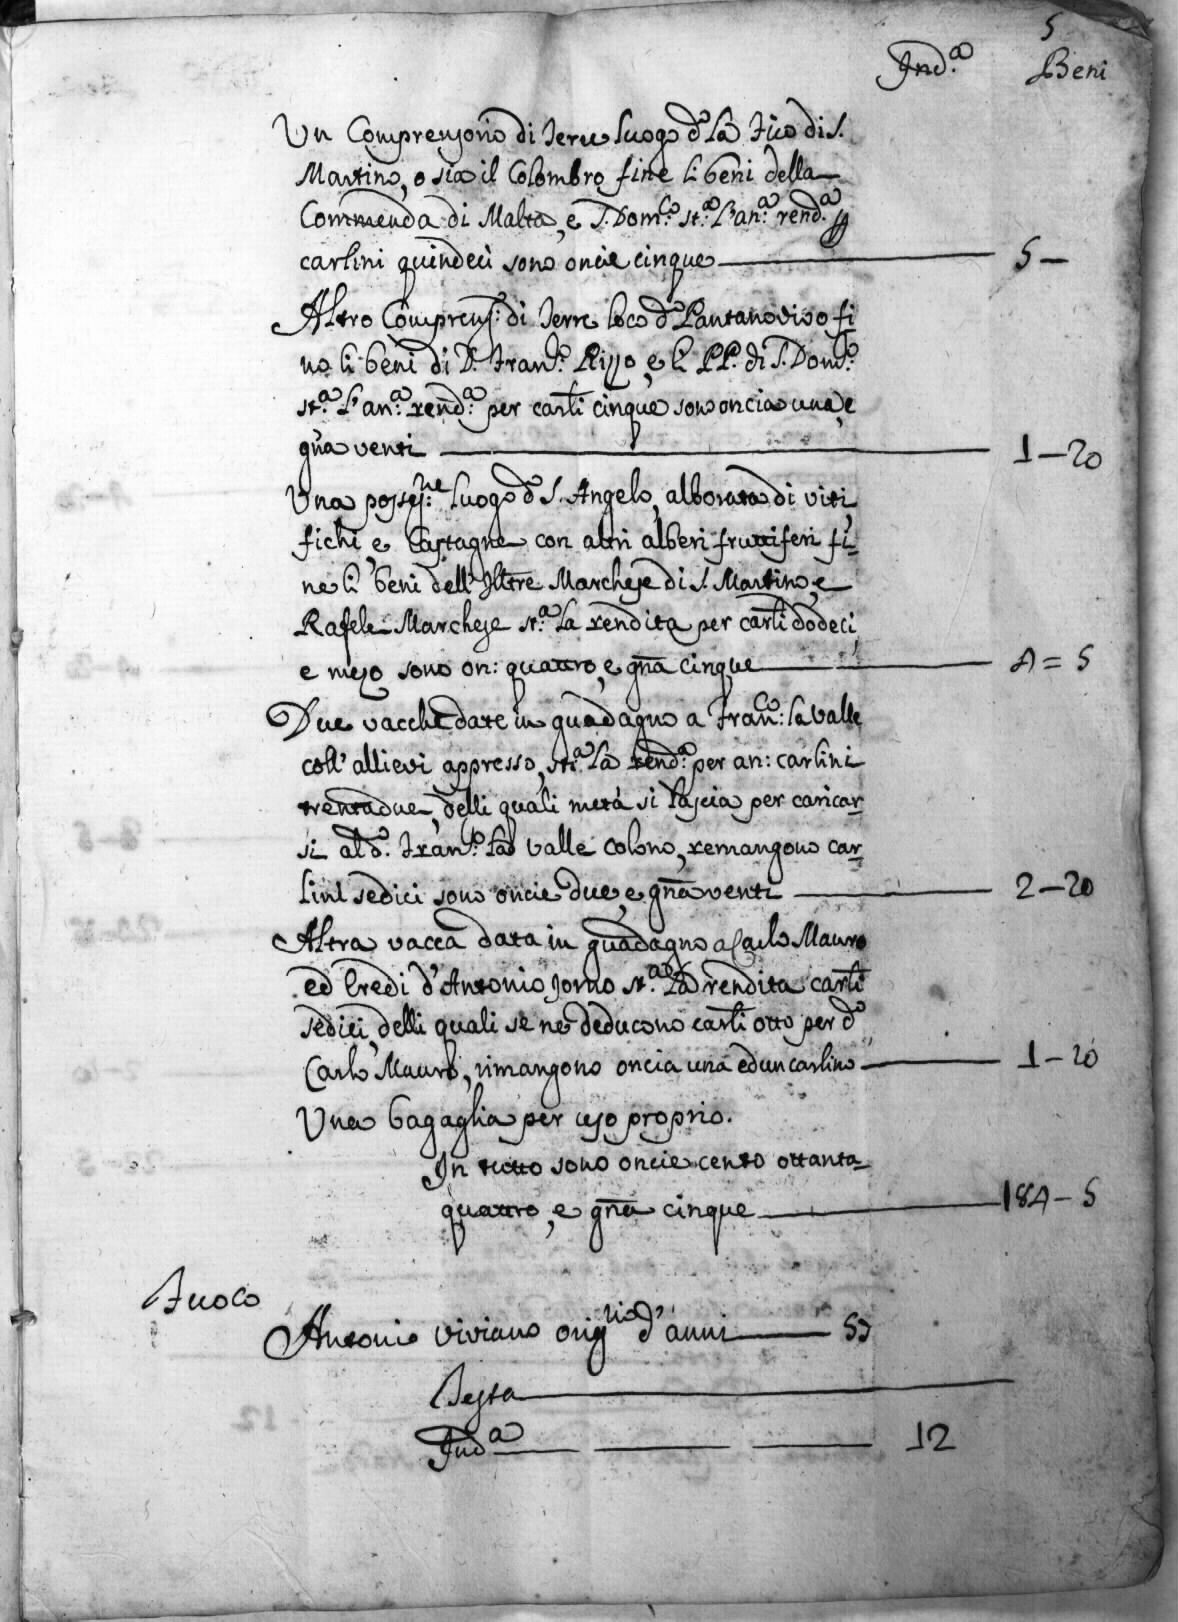 5
Ind.a Beni
Un Comprensorio di Terre luogo d.o la Fico di S.
Martino, o sia il Colombro fine li beni della
Commenda di Malta, e S. Dom.co st.a l'an.a rend.a p
carlini quindeci sono oncie cinque 5 —
Altro Comprens.: di Terre loco d.o Pantanovivo fi
no li beni di D. Fran.o Rizzo, e li PP. di S. Dom.o
st.a l'an.a rend.a per carli cinque sono oncia una, e
gna venti 1 — 20
Una posses.ne luogo d.o S. Angelo, alborata di viti,
fichi, e Castagne con altri alberi fruttiferi fi=
ne li beni dell' Illtre Marchese di S. Martino, e
Rafele Marchese st.a la rendita per carli dodeci,
e mezo sono on: quattro, e gna cinque 4 = 5
Due vacche date in guadagno a Fran.co: la Valle
coll' allievi appresso, st.a la rend.a per an: carlini
trentadue, delli quali metà si lascia per caricar=
si al d.o Fran.o la Valle colono, remangono car=
lini sedici sono oncie due, e gna venti 2 — 20
Altra vacca data in guadagno a Carlo Mauro
ed Eredi d'Antonio Jorno st.a la rendita carli
sedici, delli quali se ne deducono carli otto per d.o
Carlo Mauro, rimangono oncia una ed un carlino 1 — 10
Una bagaglia per uso proprio.
In tutto sono oncie cento ottanta=
quattro, e gna cinque 184 — 5
Fuoco
Antonio Viviano orig.rio d'anni 55
Testa
Ind.a 12